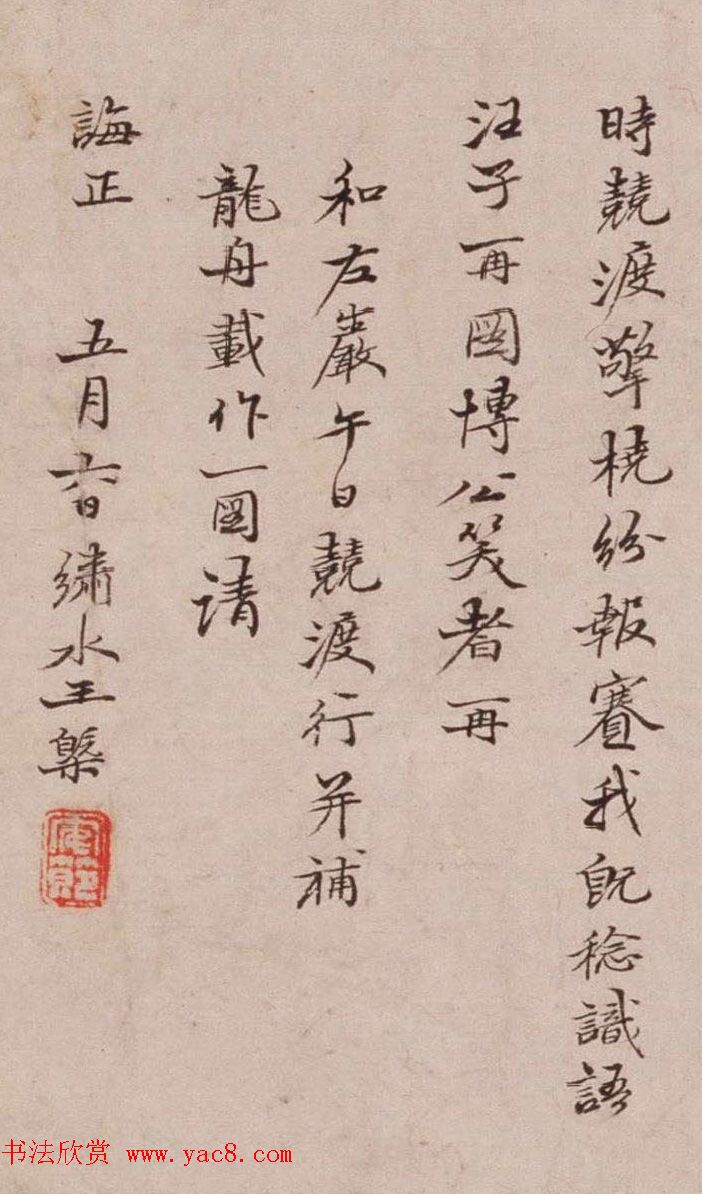 時競渡擎橈紛報賽我既稔識語
汪子再圖博公笑者再
和左巖午日競渡行并補
龍舟載作一圖請
誨正 五月六日繡水王槩
书法欣赏 www.yac8.com